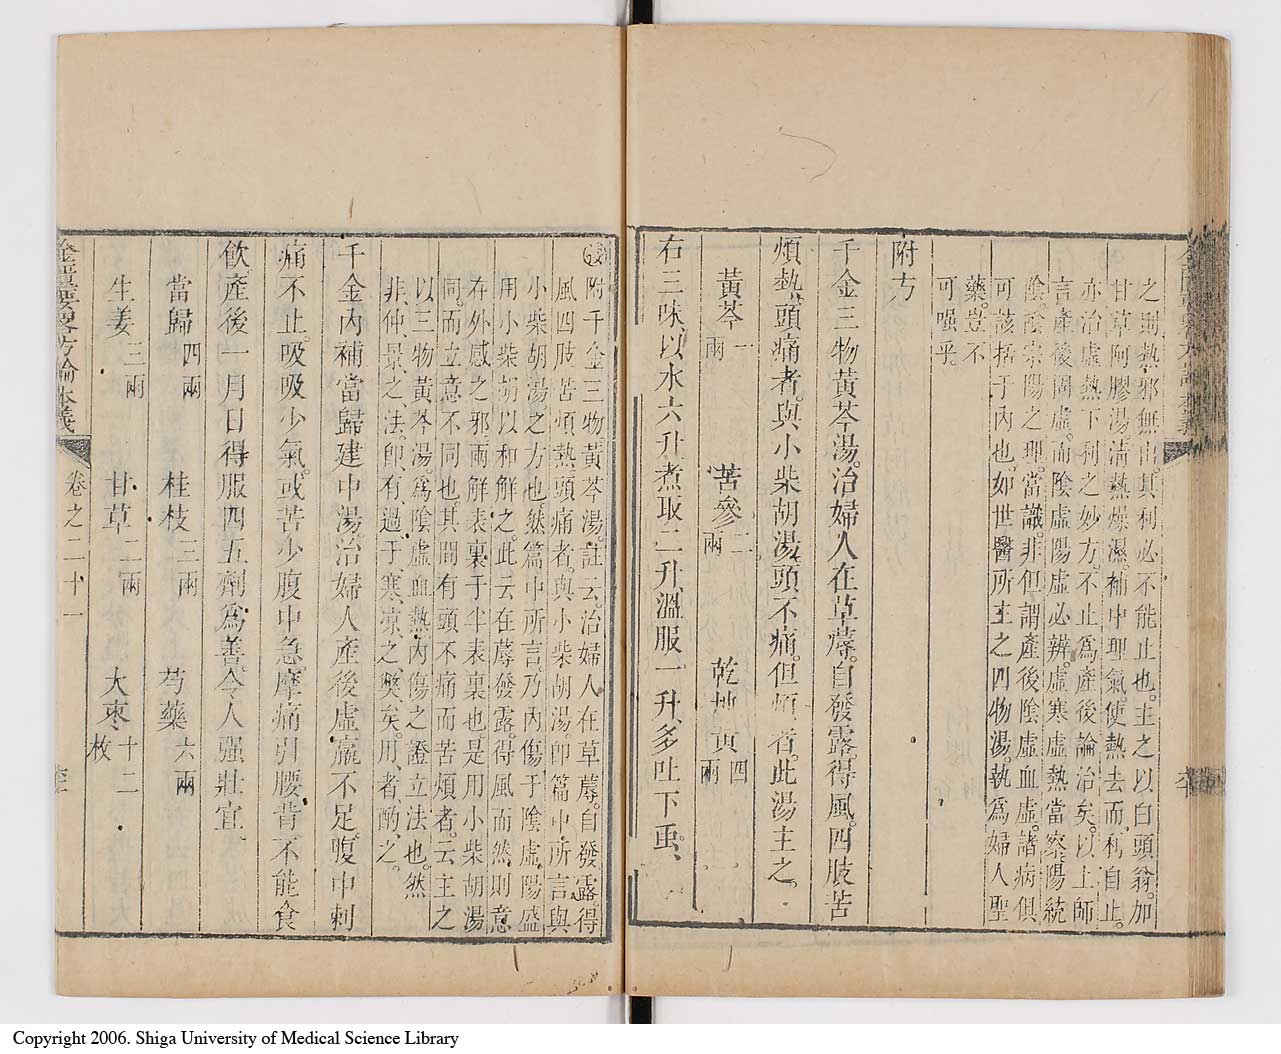 之則熱邪無出。其利必不能止也。主之以白頭翁。加
甘草阿膠湯。清熱燥濕。補中理氣。使熱去而利自止。
亦治虛熱下利之妙方。不止爲產後論治矣。以上師
言產後固虛。而陰虛陽虛必辨。虛寒虛熱當察。陽統
陰。陰宗陽之理。當識。非但謂產後陰虛血虛。諸病俱
可該括于內也。如世醫所主之四物湯。執爲婦人聖
藥。豈不
可嗤乎。
附方
千金三物黃芩湯。治婦人在草蓐。自發露。得風。四肢苦
煩熱。頭痛者。與小柴胡湯。頭不痛。但煩者。此湯主之。
黃芩一兩 苦參二兩 乾地黃四兩
右三味。以水六升。煮取二升。溫服一升。多吐下蟲。
附千金三物黃芩湯。註云。治婦人在草蓐。自發露。得
風。四肢苦煩熱。頭痛者。與小柴胡湯。卽篇中所言與
小柴胡湯之方也。然篇中所言。乃內傷于陰虛陽盛。
用小柴胡以和解之。此云在蓐發露。得風而然。則意
在外感之邪。兩解表裏于半表裏也。是用小柴胡湯
同。而立意不同也。其間有頭不痛而苦煩者。云主之
以三物黃芩湯。爲陰虛血熱。內傷之證立法也。然
非仲景之法。卽有過于寒凉之弊矣。用者酌之。
千金內補當歸建中湯。治婦人產後虛羸不足。腹中刺
痛不止。吸吸少氣。或苦少腹中急。摩痛引腰背。不能食
飲。產後一月日得服四五劑爲善。令人强壯宜。
當歸四兩 桂枝三兩 芍藥六兩
生姜三兩 甘草二兩 大棗十二枚
金匱要略方論本義 卷之二十一